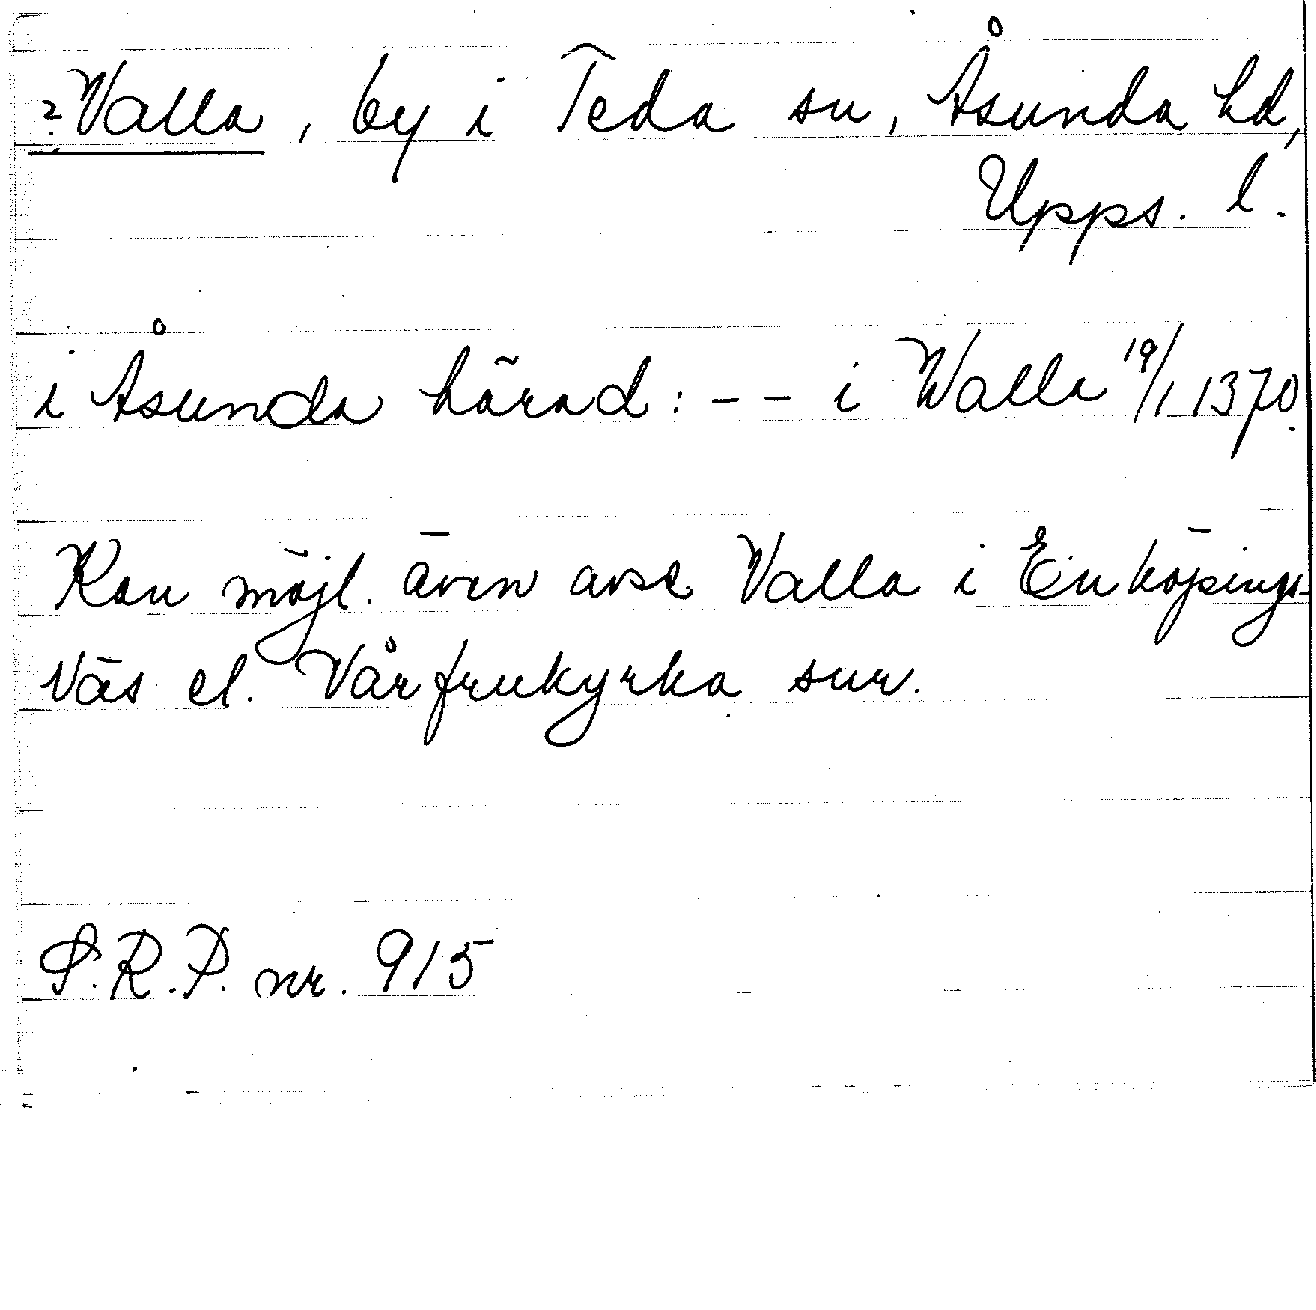 ?Valla, by i Teda sn, Åsunda hd,
Upps. l.
i Åsunda härad: -- i Walla 19/1 1370.
Kan möjl. även avse Valla i Enköpings-
Näs el. Vårfrukyrka snr.
S.R.P. nr. 915